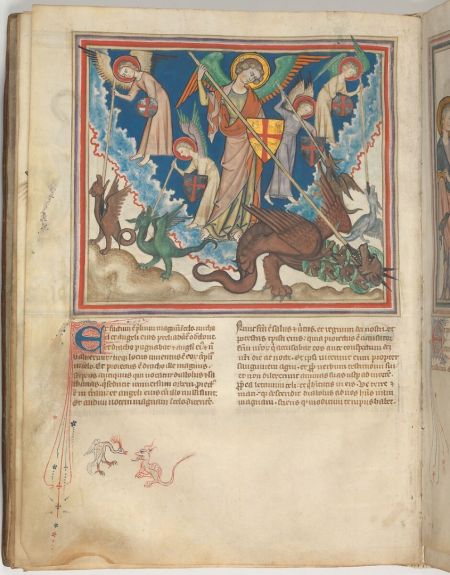 Et factum est prelium magnum celo. micha
el et angeli eius preliabant cum dracone
Et draco pugnabat et angeli ei. et n
valuerunt neq locus inventus est eor
celo. et proiectus est draco ille magnus.
serpens antiquus qui vocatur diabolus et sa
thanas. qui seducit universum orbem. proiec
t est in terram et angeli eius cum illo missi sunt.
Et audivi vocem magnam in celo dicente.
Nunc facta est salus et virtus et regnum dei nostri et
potestas christi eius. quia proiectus est accusator
qui accusabat eos ante conspectum dei
nostri die ac nocte. et ipsi vicerunt eum propter
sanguinem agni. et propter verbum testimonii sui
et non dilexerunt animas suas usque ad mortem.
letamini celi. et qui habitatis in eis. Ve terre et
mari. quia descendit diabolus ad vos habens iram
magnam. sciens quod modicum tempus habet.